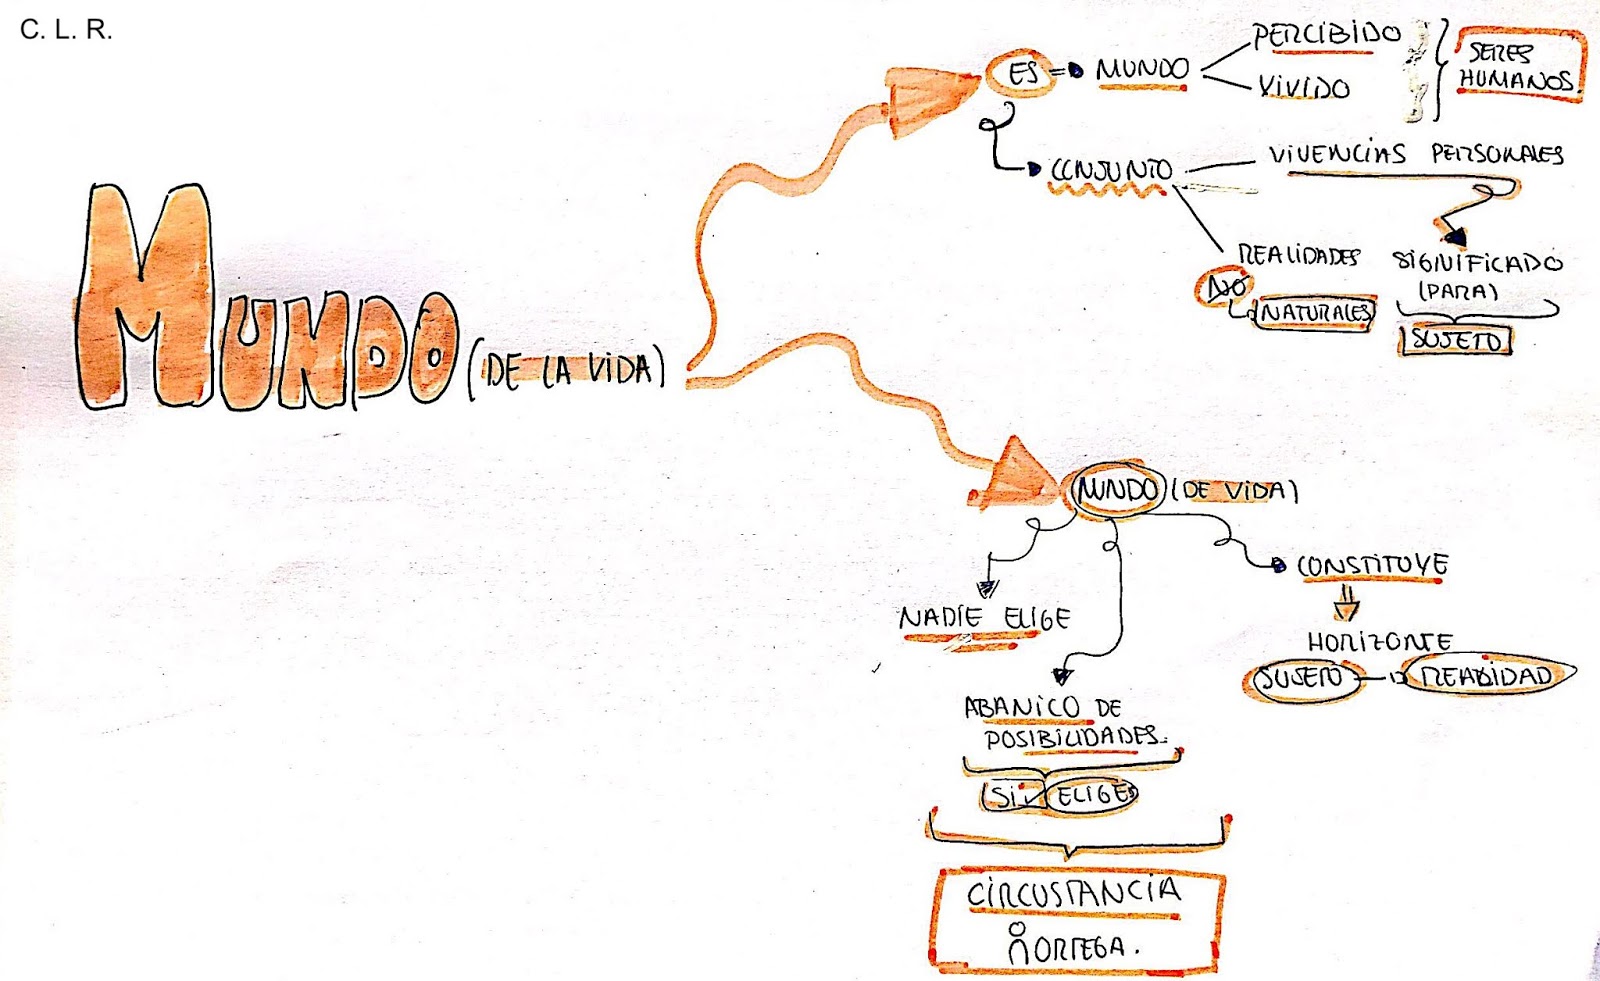 C. L. R.
MUNDO (DE LA VIDA)
ES MUNDO
PERCIBIDO
VIVIDO
SERES
HUMANOS.
CONJUNTO
VIVENCIAS PERSONALES
REALIDADES
NO
NATURALES
SIGNIFICADO
(PARA)
SUJETO
MUNDO (DE VIDA)
NADIE ELIGE
ABANICO DE
POSIBILIDADES.
SI ELIGES
CONSTITUYE
HORIZONTE
SUJETO REALIDAD
CIRCUSTANCIA
ORTEGA.